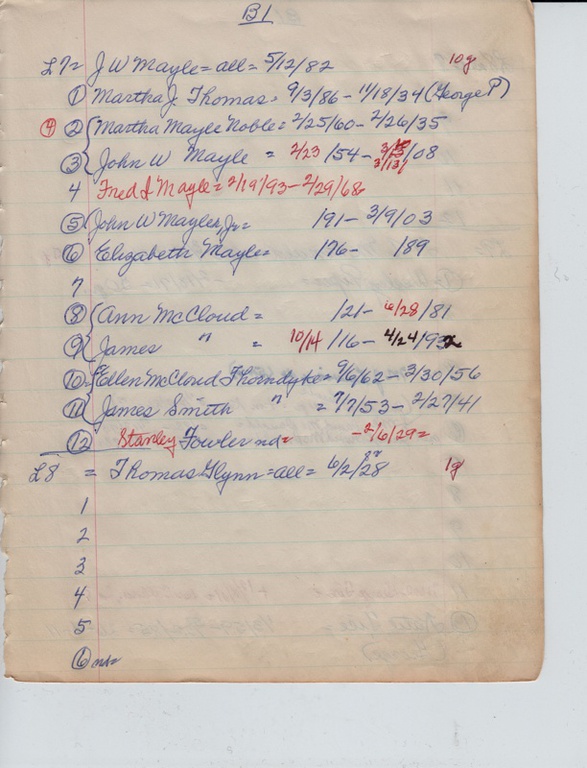 B1
L7 = J W Mayle = all = 5/12/82 10g
① Martha J. Thomas = 9/3/86 - 11/18/34 (George P)
④ ② Martha Mayle Noble = 2/25/60 - 2/26/35
③ John W Mayle = 2/23/54 - /08
3/13/
4 Fred L Mayle = 2/19/93 - 2/29/68
⑤ John W Mayle Jr = /91 - 3/9/03
⑥ Elizabeth Mayle = /76 - /89
7
⑧ Ann McCloud = /21 - 6/28/81
⑨ James " = 10/14/16 - 4/24/93
⑩ Ellen McCloud Thorndyke = 9/6/62 - 3/30/56
⑪ James Smith " = 7/7/53 - 2/27/41
⑫ Stanley Fowler nd = - 2/6/29 =
L8 = Thomas Glynn = all = 6/2/28 1g
1
2
3
4
5
⑥ ns